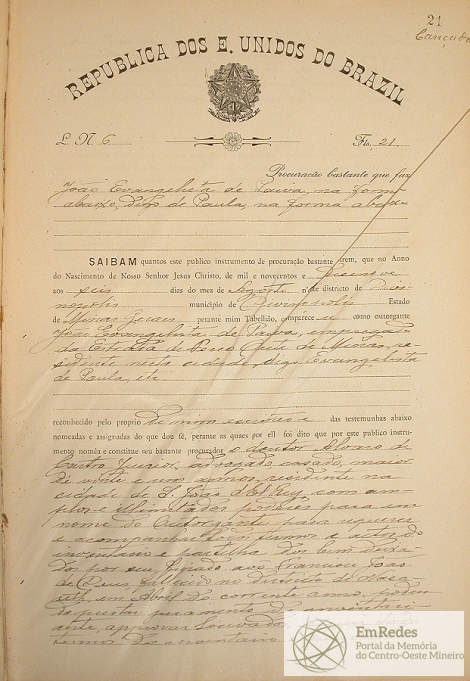 21
Cançado
REPUBLICA DOS E. UNIDOS DO BRAZIL
L. N. 6 Fls. 21
Procuração bastante que faz
João Evangelista de Paiva, na forma
abaixo, digo de Paula, na forma abaixo
SAIBAM quantos este publico instrumento de procuração bastante virem, que no Anno
do Nascimento de Nosso Senhor Jesus Christo, de mil e novecentos e
aos seis dias do mez de Agosto n'este districto de Divi-
nopolis municipio de Divinopolis Estado
de Minas Geraes perante mim Tabellião, comparece como outorgante
João Evangelista de Paiva, empregado
da Estrada de Ferro Oeste de Minas, re-
sidente nesta cidade, digo, Evangelista
de Paula, etc
reconhecido pelo proprio de mim das testemunhas abaixo
nomeadas e assignadas do que dou fé, perante as quaes por ell foi dito que por este publico instru-
mento nomêa e constitue seu bastante procurador o doutor Alvaro de
Castro advogado casado, maior
de vinte e um annos, residente na
cidade de S. João d'El-Rey, com am-
plos e illimitados poderes para em
nome do Outorgante para requerer
e acompanhar todos termos e actos do
inventario e partilha dos bens deixa-
dos por seu finado avô Francisco João
de Deus, fallecido no districto de Naza-
reth, em Abril do corrente anno, poden-
do prestar juramento de inventari-
ante, approvar louvados
termo de inventario
EmRedes
Portal da Memória
do Centro-Oeste Mineiro